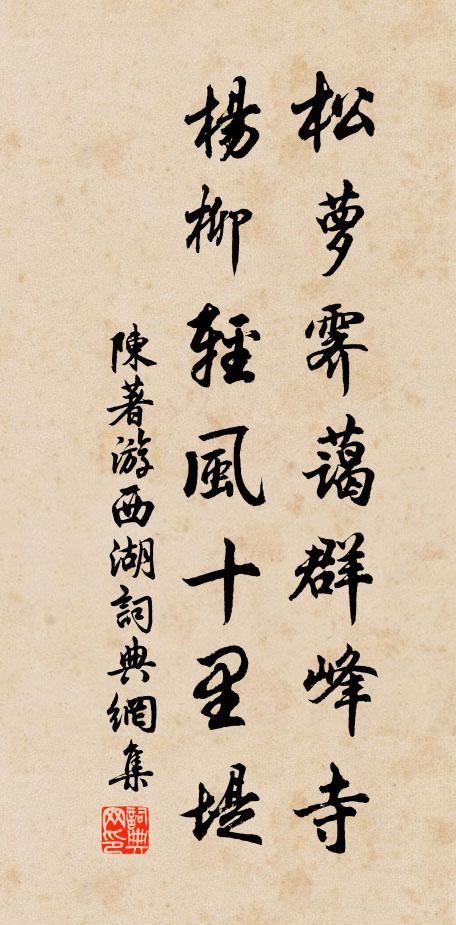 松萝霁蔼群峰寺
楊柳輕風十里堤
陳著游西湖詞典網集
詞典網印